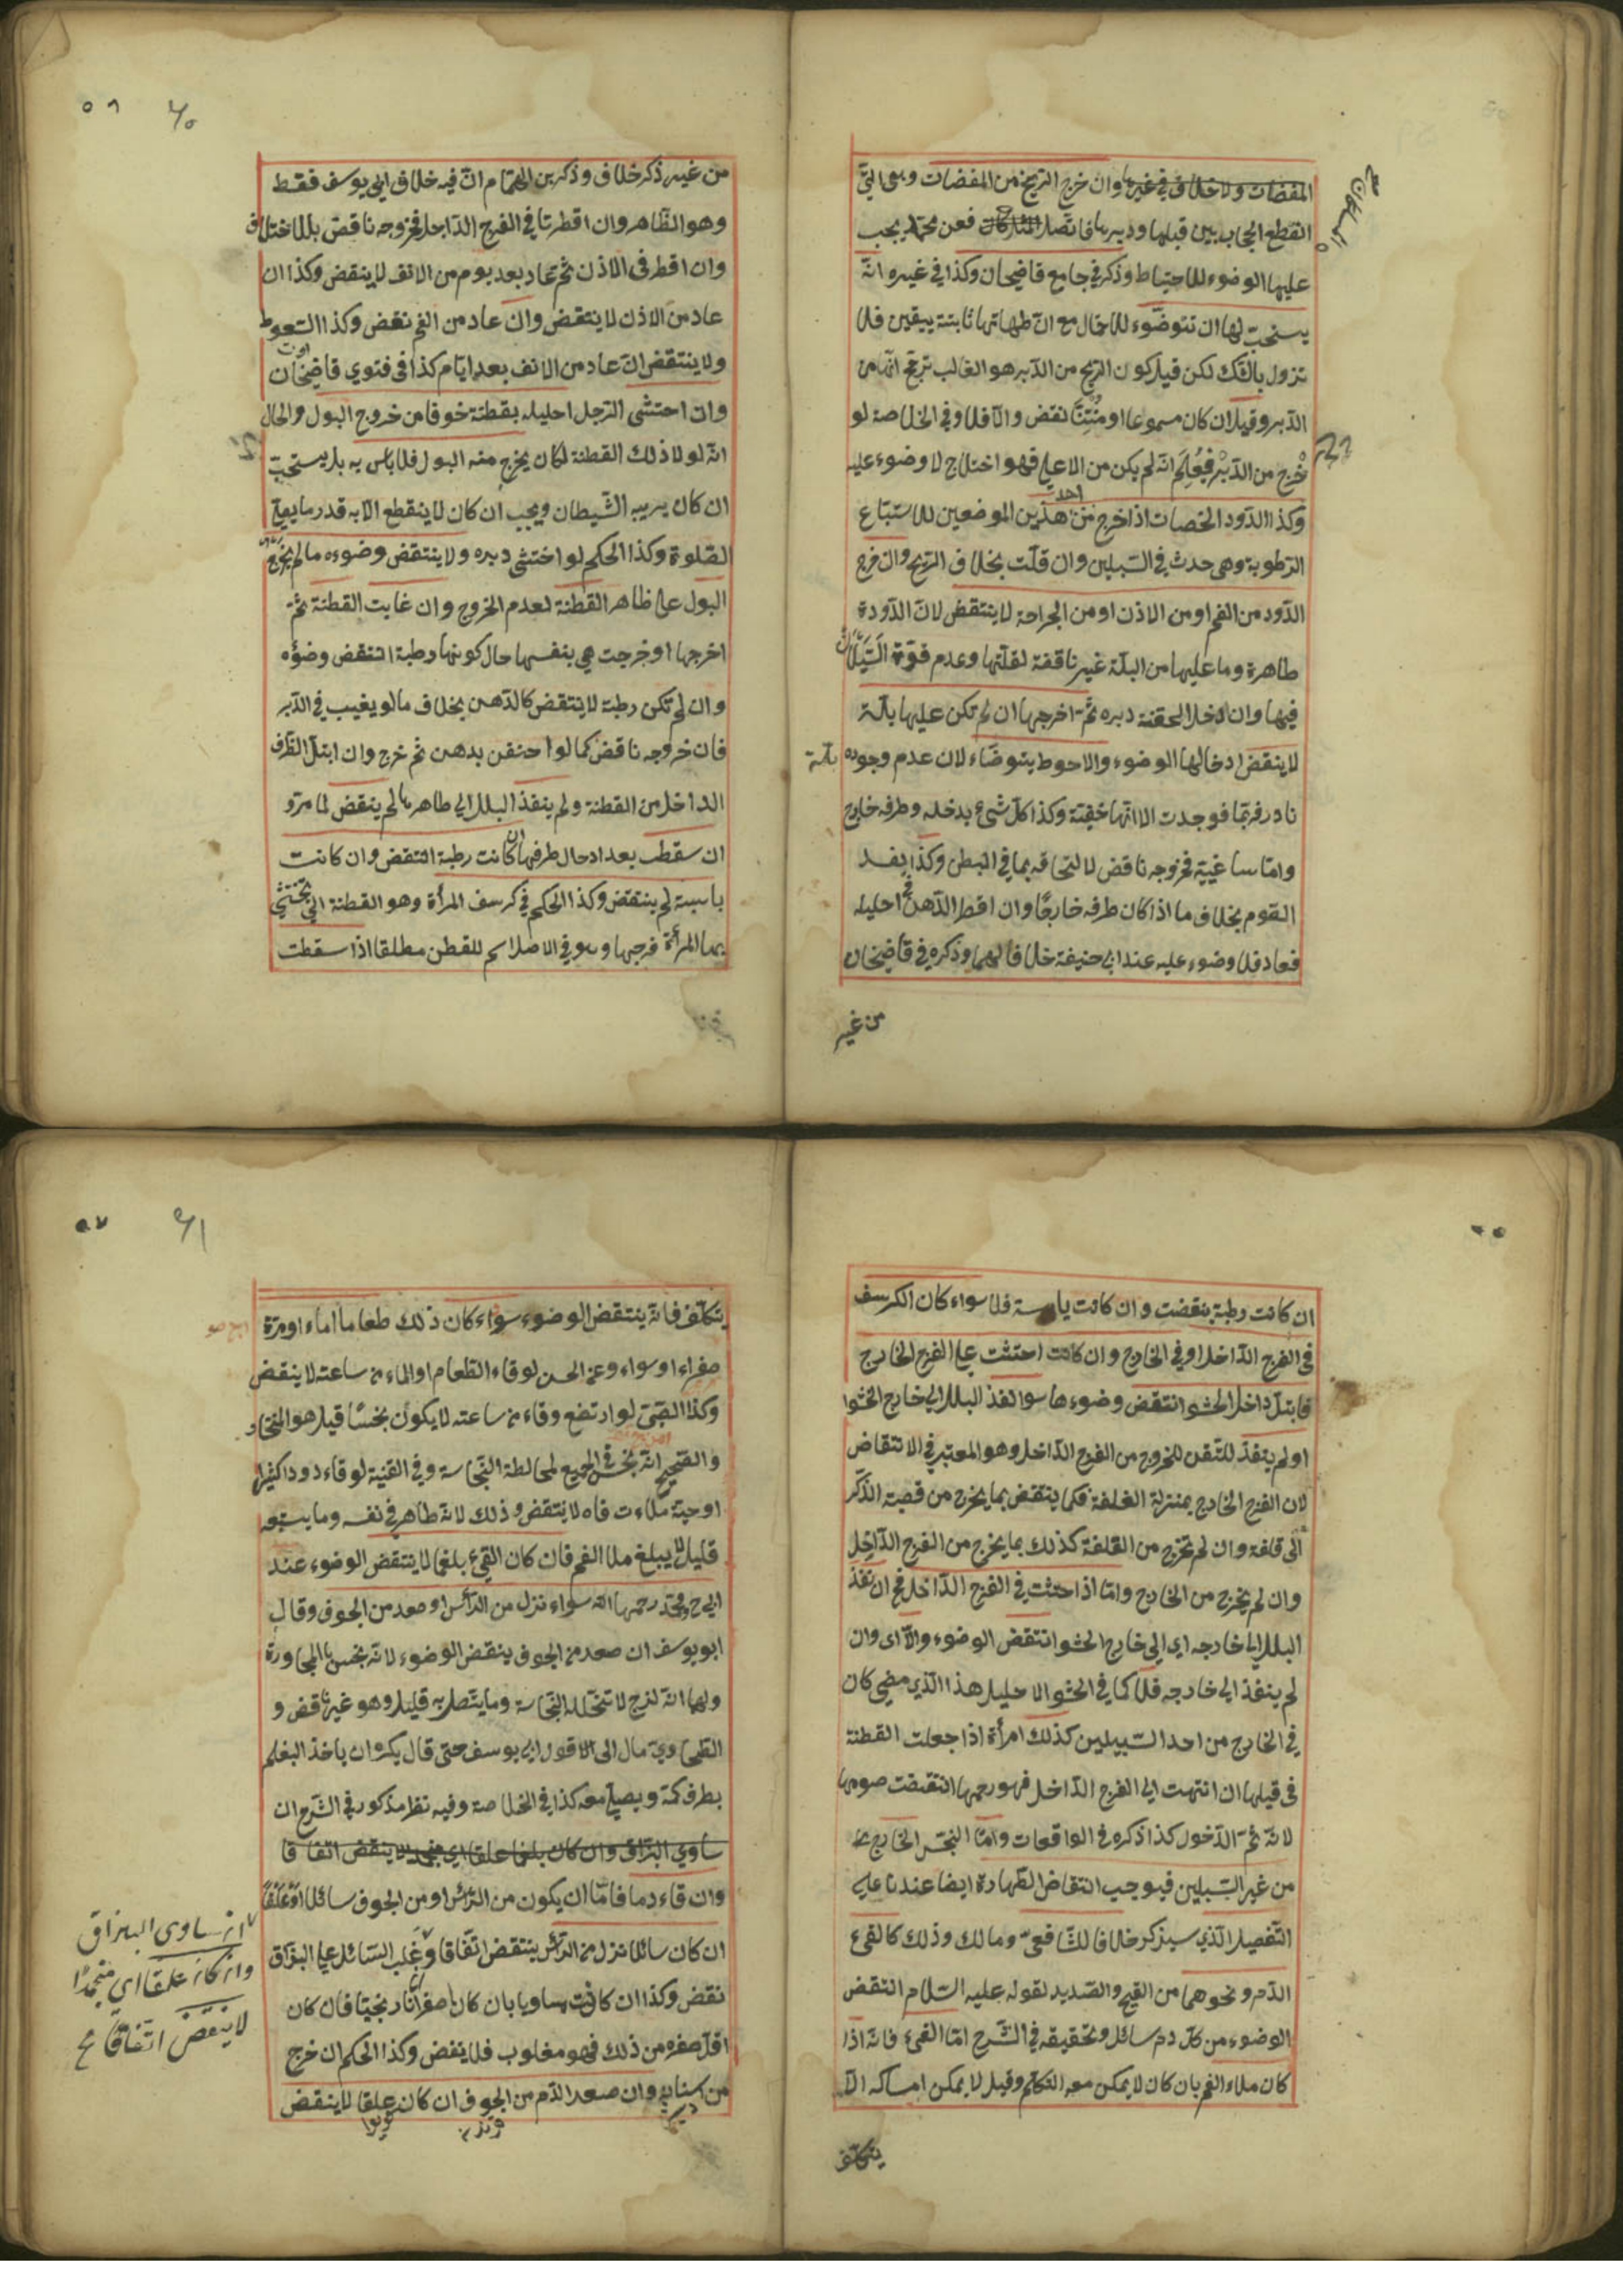 المفضات ولا خلاف في غيرها وان خرج الريح من المفضات وهي التي
انقطع الحجاب بين قبلها ودبرها فاتصلا فعن محمد يجب
المسلكان صح
عليها الوضوء للاحتياط وذكر في جامع قاضيخان وكذا في غيره انه
يستحب لها ان تتوضوء للاحتمال مع ان طهارتها ثابتة بيقين فلا
تزول بالشك لكن قيل كون الريح من الدبر هو الغالب ترجح انه من
الدبر وقيل ان كان مسموعا او منتنا نقض والا فلا وفي الخلاصة لو
خرج من الدبر فعلم انه لم يكن من الاعلى فهو اختلاج لا وضوء عليه
ريح
وكذا الدود الحصات اذا خرج من احد هذين الموضعين للاستتباع
الرطوبة وهي حدث في السبيلين وان قلت بخلاف الريح وان خرج
الدود من الفم او من الاذن او من الجراحة لا ينتقض لان الدودة
طاهرة وما عليها من البلة غير ناقضة لقلتها وعدم قوة السيلان
فيها وان ادخل المحقنة دبره ثم اخرجها ان لم تكن عليها بلة
لا ينقض ادخالها الوضوء والاحوط يتوضاء لان عدم وجوده بلة
نادر فربما فوجدت الا انها خفية وكذا كل شئ يدخله وطرفه خارج
واما ما غيبه فخروجه ناقض لالتحاقه بما في البطن وكذا يفسد
القوم بخلاف ما اذا كان طرفه خارجا وان اقطر الدهن في احليله
فعاد فلا وضوء عليه عند ابي حنيفة خلافا لهما وذكره في قاضيخان
من غير
٥٦ ٦٠
من غير ذكر خلاف وذكر بن الهمام ان فيه خلاف ابي يوسف فقط
وهو الظاهر وان اقطرتا في الفرج الداخل فخروجه ناقض بلا اختلاف
وان اقطر في الاذن ثم عاد بعد يوم من الانف لا ينقض وكذا ان
عاد من الاذن لا ينتقض وان عاد من الفم نقض وكذا السعوط
ولا ينتقض ان عاد من الانف بعد ايام كذا في فتوي قاضيخان
وان احتشى الرجل احليله بقطنة خوفا من خروج البول والحال
انه لولا ذلك القطنة لكان يخرج منه البول فلا باس به بل يستحب
ان كان يريبه الشيطان ويجب ان كان لا ينقطع الا به قدر ما يصلي
الصلوة وكذا الحكم لو احتشى دبره ولا ينتقض وضوءه ما لم يخرج
البول على ظاهر القطنة لعدم الخروج وان غابت القطنة ثم
اخرجها او خرجت هي بنفسها حال كونها رطبة انتقض وضؤه
وان لم تكن رطبة لا ينتقض كالدهن بخلاف ما لو يغيب في الدبر
فان خروجه ناقض كما لو احتقن بدهن ثم خرج وان ابتل الطرف
الداخل من القطنة ولم ينفذ البلل الى طاهرها لم ينقض لما مر و
ان سقطت بعد ادخال طرفها ان كانت رطبة انتقض وان كانت
يابسة لم ينتقض وكذا الحكم في كرسف المرأة وهو القطنة التي تحتشي
بها المرأة فرجها وهو في الاصل اسم للقطن مطلقا اذا سقطت
ان كانت رطبة ينقضت وان كانت يابسة فلا سواء كان الكرسف
في الفرج الداخل او في الخارج وان كانت احتشت على الفرج الخارج
فابتل داخل الحشو انتقض وضوءها سوا نفذ البلل الى خارج الحشوا
او لم ينفذ للتيقن للخروج من الفرج الداخل وهو المعتبر في الانتقاض
لان الفرج الخارج بمنزلة الغلفة فكما ينتقض بما يخرج من قصبة الذكر
الى قلفة وان لم تخرج من القلفة كذلك بما يخرج من الفرج الداخل
وان لم يخرج من الخارج واما اذا احتشت في الفرج الداخل فح ان نفذ
البلل الى خارجه اي الى خارج الحشو انتقض الوضوء والا اى وان
لم ينفذ الى خارجه فلا كما في الحشو الاحليل هذا الذي مضى كان
في الخارج من احد السبيلين كذلك امرأة اذا جعلت القطنة
في قبلها ان انتهت الى الفرج الداخل فهو رحمها انتقضت صومها
لانه ثم الدخول كذا ذكره في الواقعات واما النجس الخارج
من غير السبيلين فيوجب انتقاض الطهارة ايضا عندنا على
التفصيل الذي سيذكر خلافا للشافعي ومالك وذلك كالقيء
الدم ونحوهما من القيح والصديد لقوله عليه السلام انتقض
الوضوء من كل دم سائل وتحقيقه في الشرح اما القيء فانه اذا
كان ملاء الفم بان كان لا يمكن معه التكلم وقيل لا يمكن امساكه الا
يتكلف
٥٧ ٦١
يتكلف فانه ينتقض الوضوء سواء كان ذلك طعاما او ماء او مرة
صفراء او سواء وعن الحسن لو قاء الطعام او الماء من ساعته لا ينقض
وكذا الصبي لو ارتضع وقاء من ساعته لا يكون نجسا قيل هو المختار
والصحيح انه نجس في الجميع لمخالطة النجاسة وفي القنية لو قاء دودا كثيرا
او حية ملاءت فاه لا ينتقض وذلك لانه طاهر في نفسه وما يستتبعه
قليل لا يبلغ ملا الفم فان كان القيء بلغما لا ينتقض الوضوء عند
ابي ح ومحمد رحمهما الله سواء نزل من الرأس او صعد من الجوف وقال
ابو يوسف ان صعد من الجوف ينقض الوضوء لانه نجس بالمجاورة
ولهما انه لزج لا تتخلله النجاسة وما يتصل به قليل وهو غير ناقض و
الطحاوي مال الى قول ابي يوسف حتى قال يكره ان ياخذ البغلم
بطرف كمه ويصلي معه كذا في الخلاصة وفيه نظر مذكور في الشرح ان
ساوي البزاق وان كان بلغما علقا اي منجمد لا ينقض اتفاقا
وان قاء دما فاما ان يكون من الرأس او من الجوف سائلا او علقا
ان كان سائلا نزل من الرأس ينتقض اتفاقا وغلب السائل على البزاق
نقض وكذا ان كانت يساويا بان كان اصفرانارنجيا فان كان
اقل صفره من ذلك فهو مغلوب فلا ينقض وكذا الحكم ان خرج
من اسنانه وان صعد الدم من الجوف ان كان علقا لا ينقض
ان ساوى البزاق
وان كان علقا اي منجمدا
لا ينقض اتفاقا صح